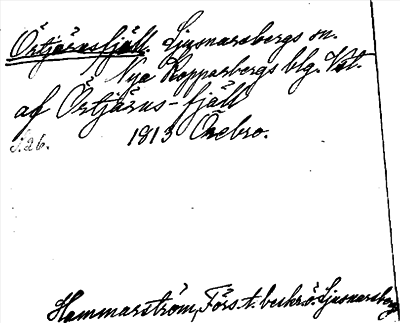 Östjärnsfjäll. Ljusnarsbergs sn.
Nya Kopparbergs blg. Vst.
af Östjärns-fjäll
s.26. 1813 Örebro.
Hammarström, Förs.t. beskr.ö. Ljusnarsberg